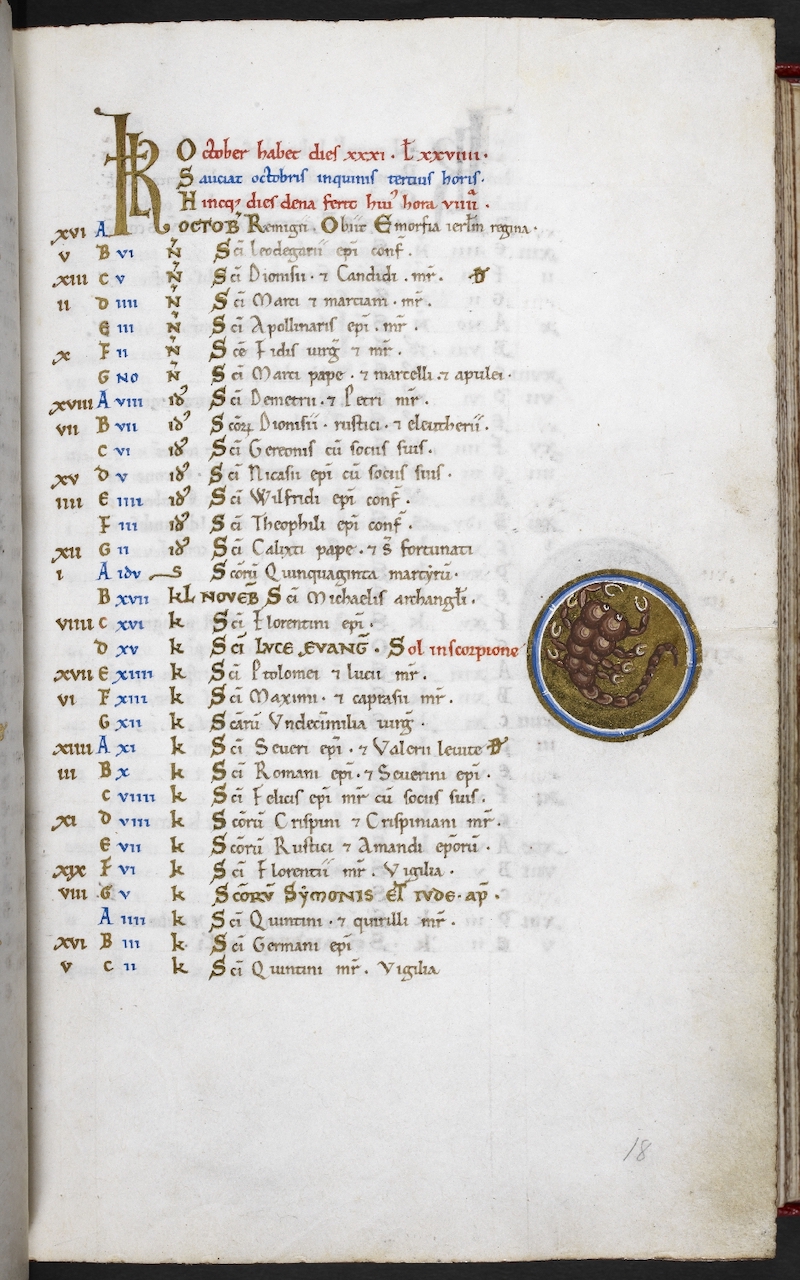 KL October habet dies xxxi. L xxviiii.
Sauciat octobris inquinis tertius horis.
Hincq; dies dena fert huiꝰ hora viiii.
xvi A OCTOB Remigii. Obiit Emorfia ierlm regina.
v B vi N Sci Leodegarii epi conf.
xiii C v N Sci Dionisii. ⁊ Candidi. mr. D
ii D iiii N Sci Marci ⁊ marciani. mr.
E iii N Sci Apollinaris epi. mr.
x F ii N Sce Fidis uirg ⁊ mr.
G NO N Sci Marci pape. ⁊ marcelli. ⁊ apulei.
xviii A viii id Sci Demetrii. ⁊ Petri mr.
vii B vii id Scorꝝ Dionisii. rustici. ⁊ eleutherii.
C vi id Sci Gereonis cū sociis suis.
xv D v id Sci Nicasii epi cū sociis suis.
iiii E iiii id Sci Wilfridi epi conf.
F iii id Sci Theophili epi conf.
xii G ii id Sci Calixti pape. ⁊ s fortunati
i A idv s Scorū Quinquaginta martyrū.
B xvii kL NOVEB Sci Michaelis archangli.
viiii C xvi k Sci Florentini epi.
D xv k Sci LVCE EVANG. Sol in scorpione
xvii E xiiii k Sci Ptolomei ⁊ lucii mr.
vi F xiii k Sci Maximi. ⁊ caprasii mr.
G xii k Scarū Vndecimilia uirg.
xiiii A xi k Sci Seueri epi. ⁊ Valerii leuite D
iii B x k Sci Romani epi. ⁊ Seuerini epi.
C viiii k Sci Felicis epi mr cū sociis suis.
xi D viii k Scorū Crispini ⁊ Crispiniani mr.
E vii k Scorū Rustici ⁊ Amandi eporū.
xix F vi k Sci Florentii mr. Vigilia.
viii G v k Scorū SYMONIS ET IVDE. ap.
A iiii k Sci Quintini. ⁊ quirilli mr.
xvi B iii k Sci Germani epi
v C ii k Sci Quintini mr. Vigilia
18